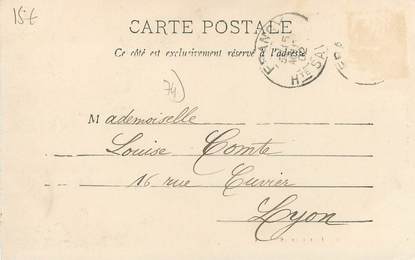 15€
CARTE POSTALE
Ce côté est exclusivement réservé à l'adresse
74)
Mademoiselle
Louise Comte
16 rue Cuvier
Lyon